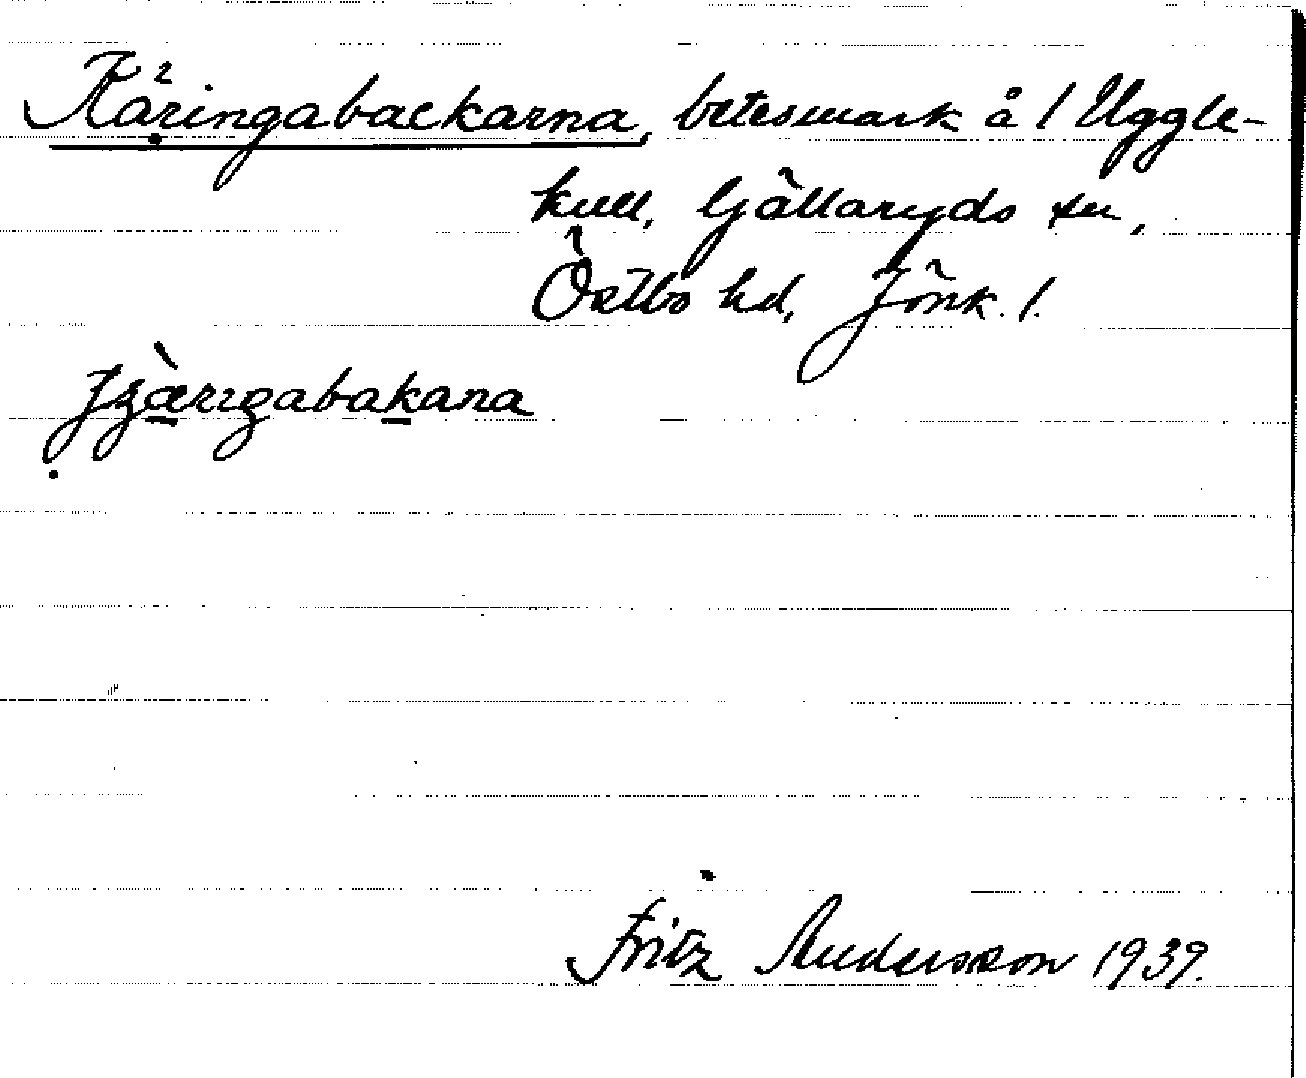 Käringabackarna, betesmark å 1 Uggle-
kull, Gällaryds sn,
Östbo hd, Jönk. l.
Fritz Andersson 1939.